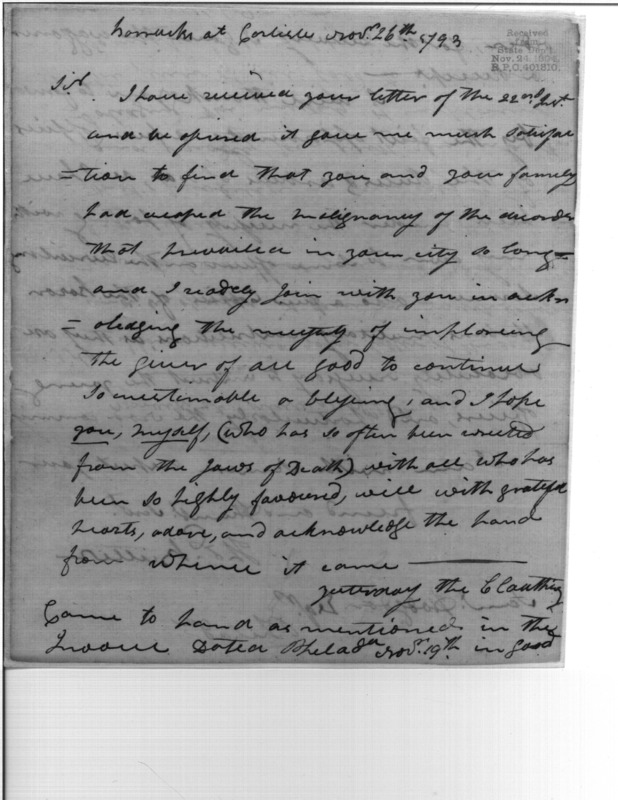 Barracks at Carlisle Novr. 26th 1793
Received
from
State Dep't
Nov. 24, 1904,
R.P.O. 401210.
Sir.
I have received your letter of the 22nd Inst.
and be assured it gave me much satisfac
=tion to find that you and your family
had escaped the malignancy of the disorder
that prevailed in your city so long=
and I readely Join with you in ackn
=oledging the necessity of imploring
the giver of all good to continue
So inestimable a blessing, and I hope
you, myself, (who has so often been
from the Jaws of Death) with all who has
been so highly favoured, will with gratefull
hearts, adore, and acknowledge the hand
from whence it came
yesterday the Cloathing
Came to hand as mentioned in the
Invoice Dated Philada Novr. 19th in good